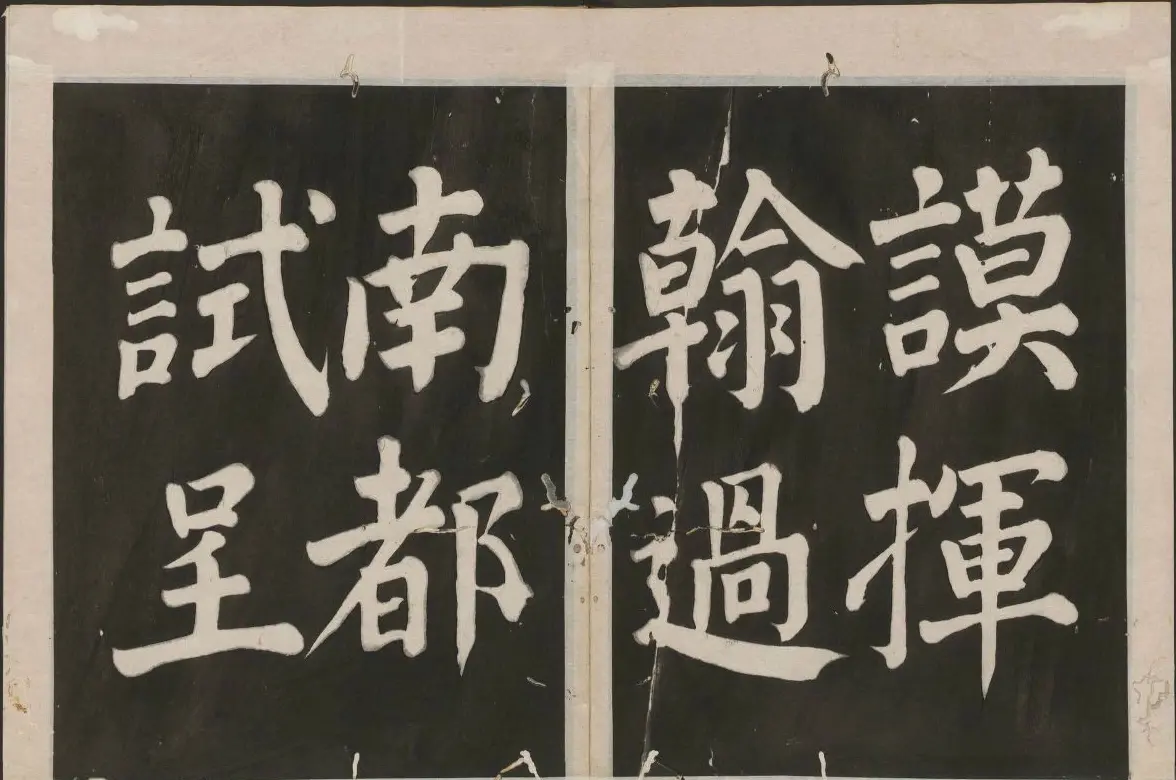 謨揮
翰過
南都
試呈